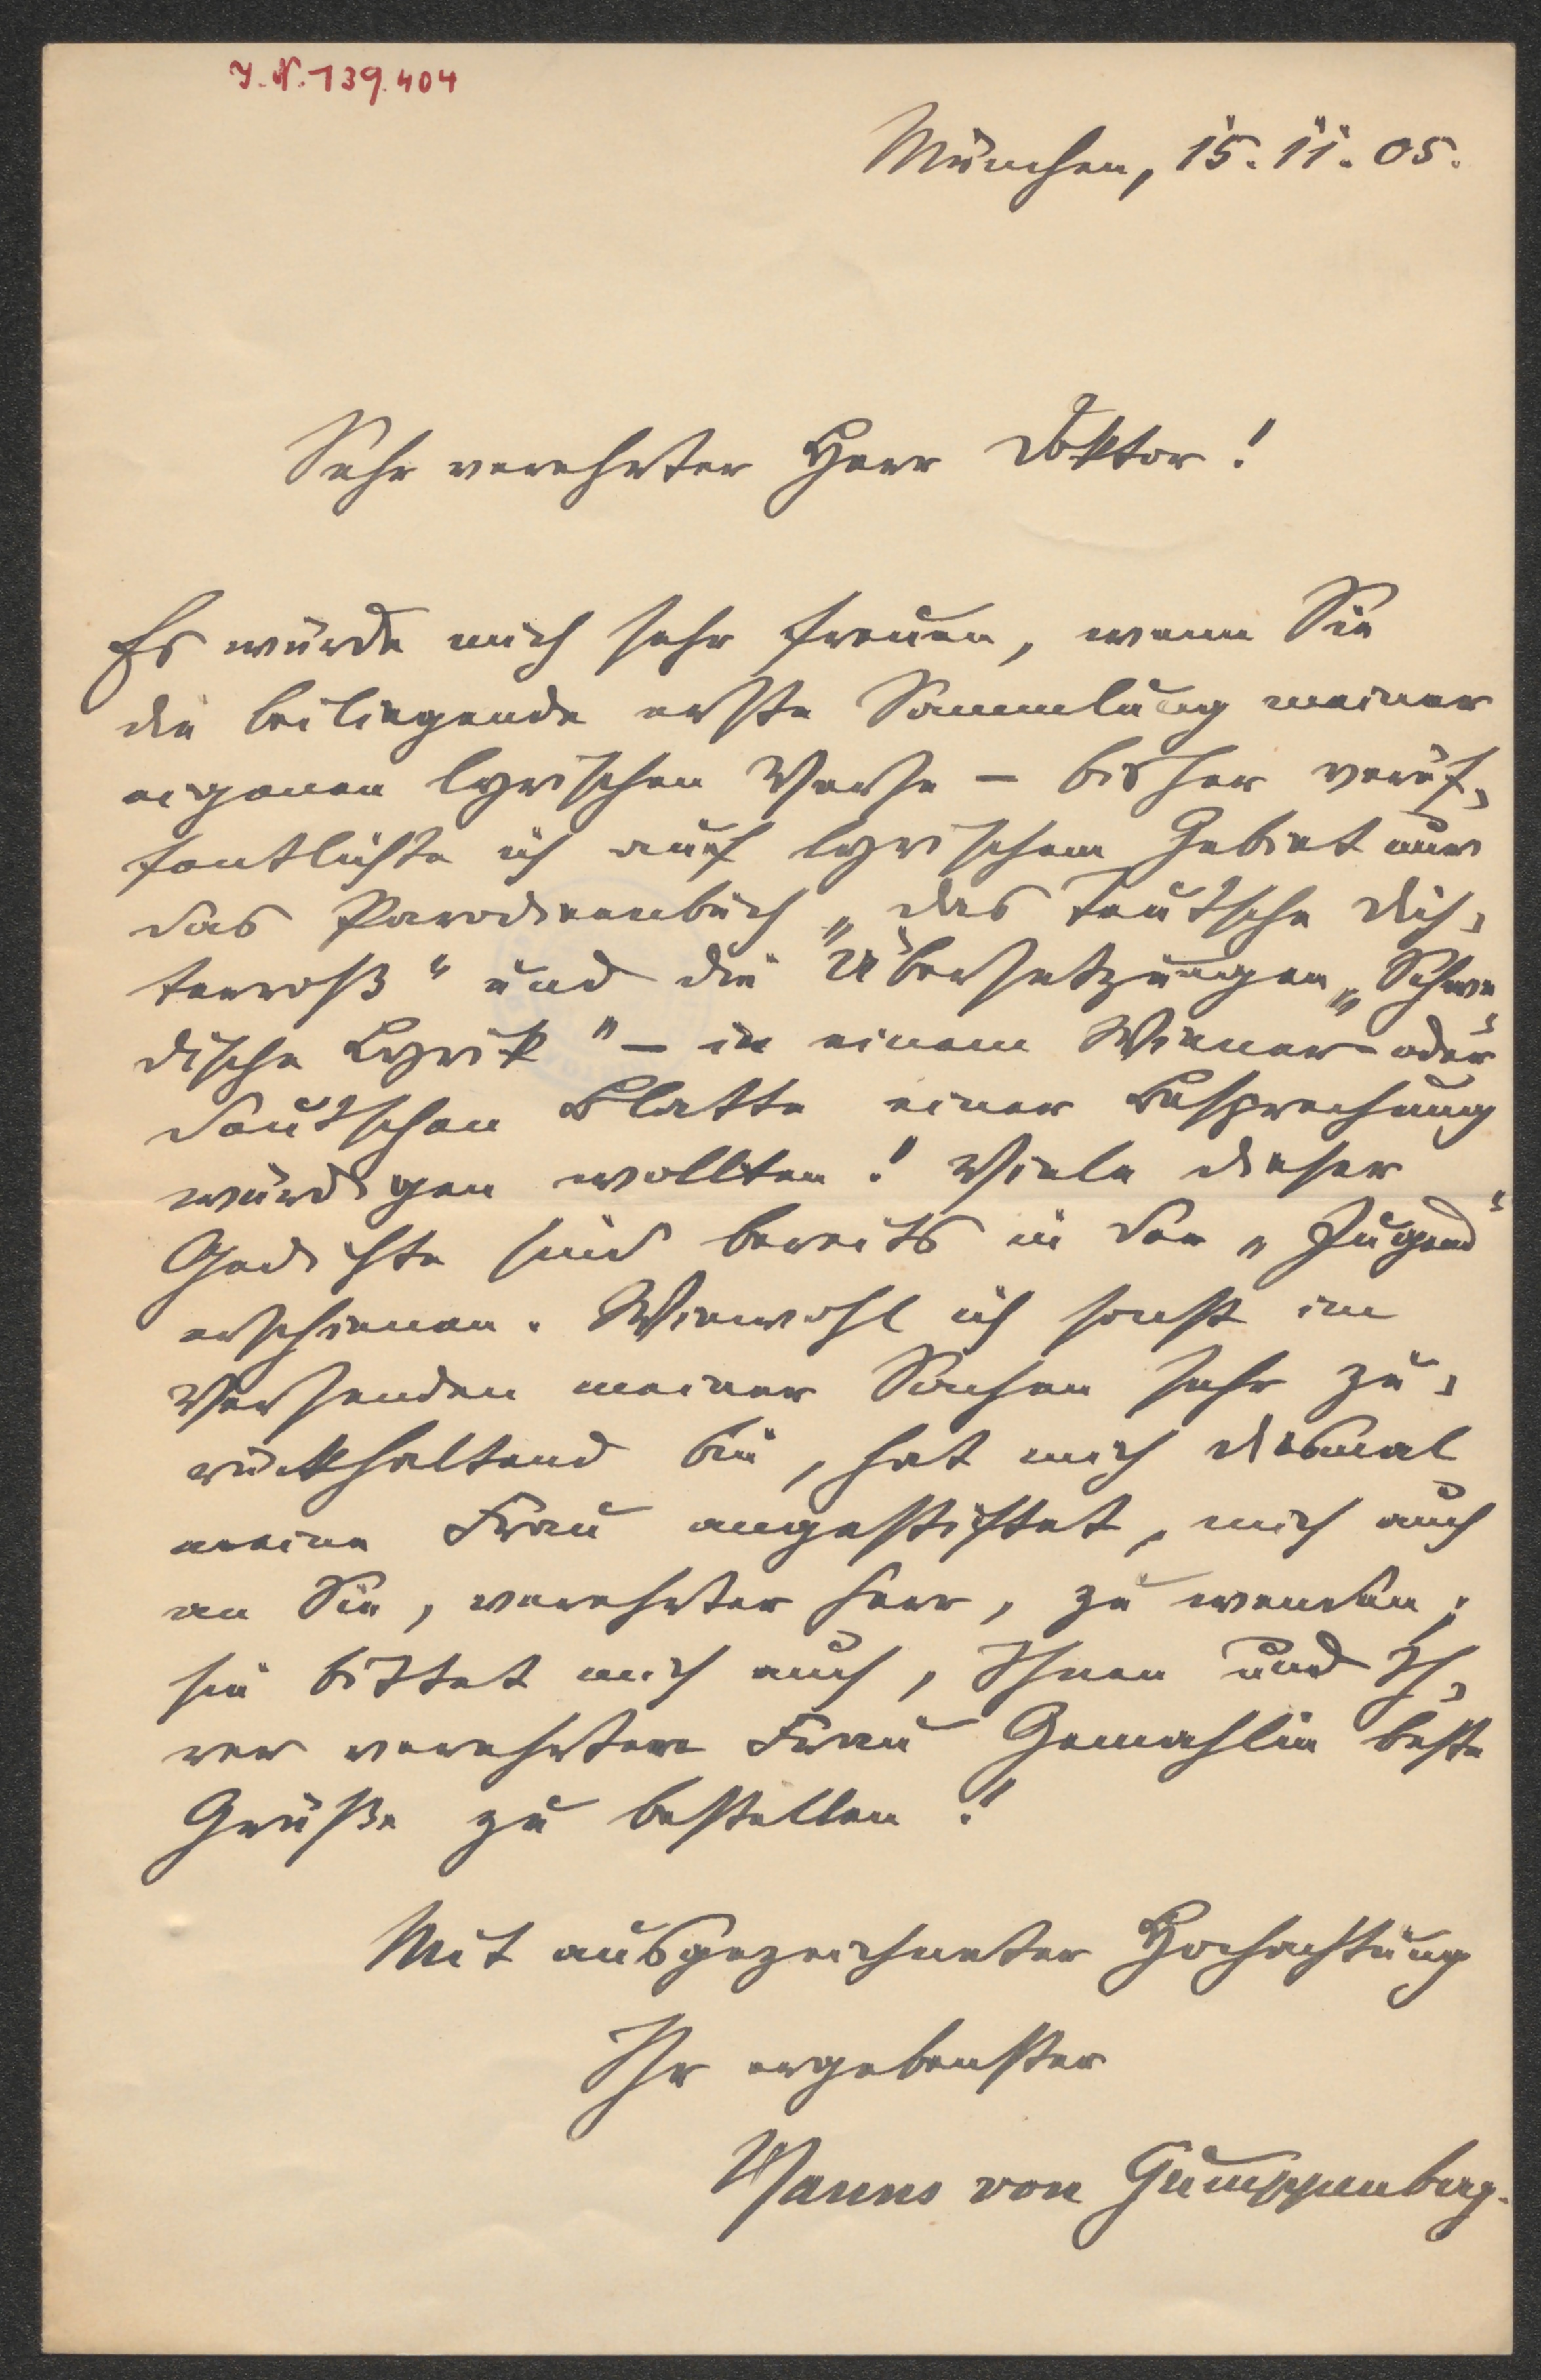 J. N. 139.404
München, 15. 11. 05.
Sehr verehrter Herr Doktor!
Es würde mich sehr freuen, wenn Sie
die beiliegende erste Sammlung meiner
eigenen lyrischen Verse – bisher veröf-
fentlichte ich auf lyrischem Gebiet nur
das Parodieenbuch „Das teutsche Dich-
terroß“ und die Übersetzungen „Schwe-
dische Lyrik“ – in einem Wiener oder
deutschen Blatte einer Besprechung
würdigen wollten! Viele dieser
Gedichte sind bereits in der „Jugend“
erschienen. Wiewohl ich sonst im
Versenden meiner Sachen sehr zu-
rückhaltend bin, hat mich diesmal
meine Frau angestiftet, mich auch
an Sie, verehrter Herr, zu wenden;
sie bittet mich auch, Ihnen und Ih-
rer verehrten Frau Gemahlin beste
Grüße zu bestellen!
Mit ausgezeichneter Hochachtung
Ihr ergebenster
Hanns von Gumppenberg.